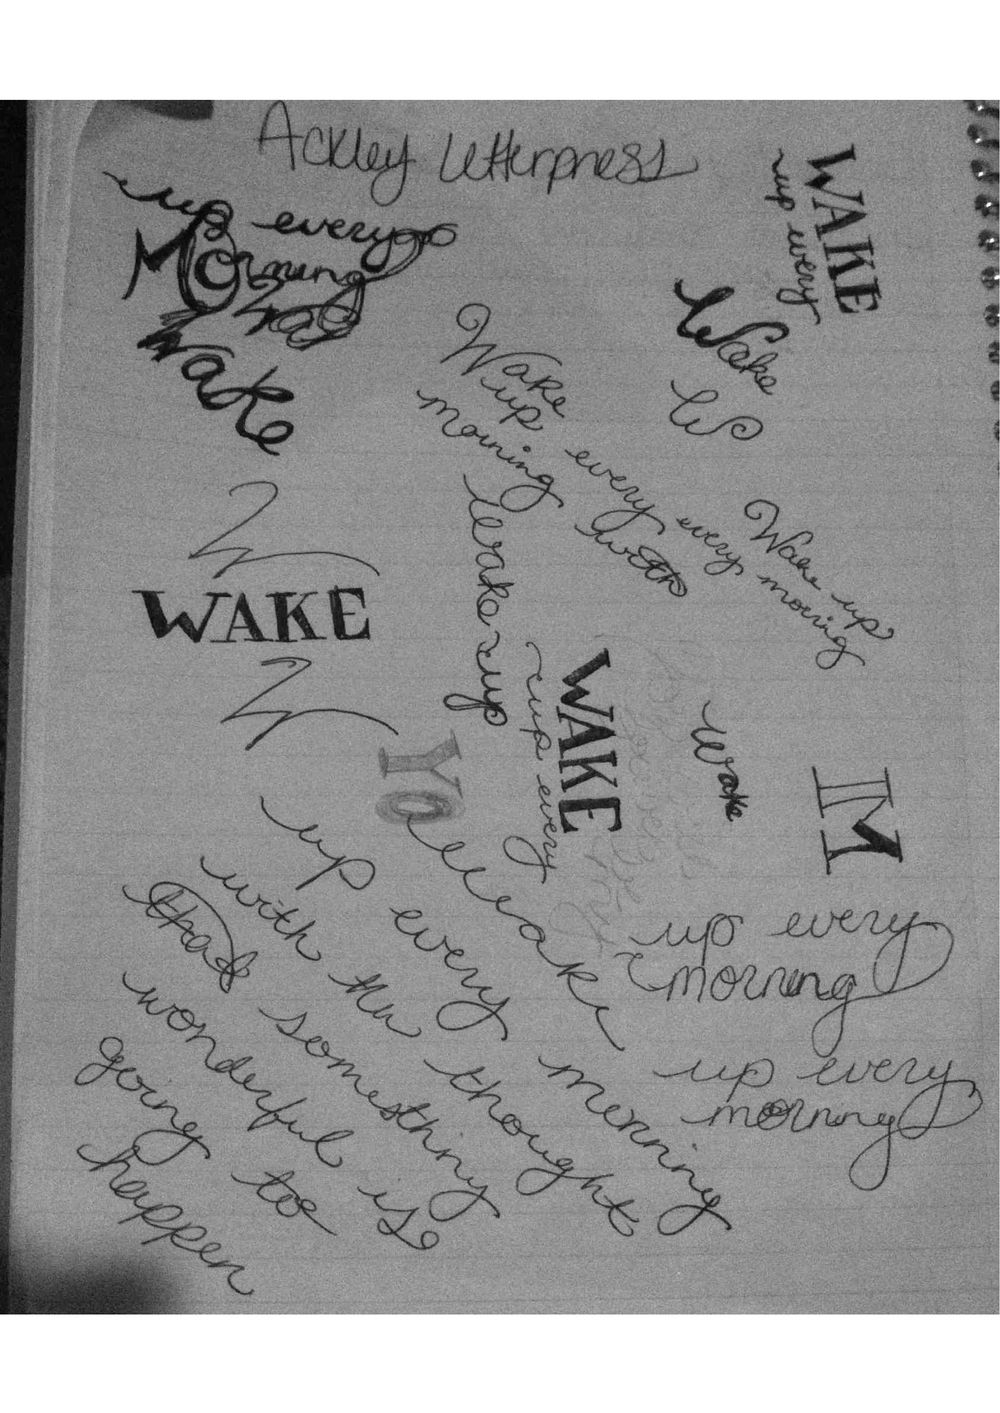 Ackley Letterpress
up every
Morning
Wake
WAKE
up every
Wake
W
Wake
up every
morning with
Wake up
every morning
W
WAKE
W
Wake up
WAKE
up every
Wake
YO
IM
up every
morning
up every
morning
Wake
up every morning
with the thought
that somesthing
wonderful is
going to
happen